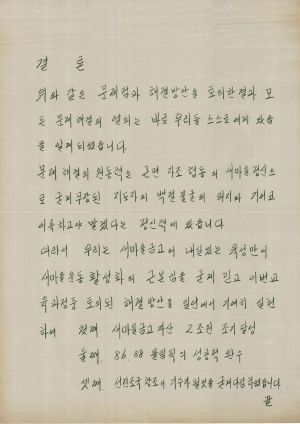 결 론
위와 같은 문제점과 해결방안을 토의한결과 모
든 문제 해결의 열쇠는 바로 우리들 스스로에게 있음
을 알게 되었습니다.
문제 해결의 원동력은 근면 자조 협동의 새마을정신으
로 굳게 무장된 지도자의 백절불굴의 의지와 기어코
이룩하고야 말겠다는 정신력에 있습니다
따라서 우리는 새마을금고의 내실있는 육성만이
새마을운동 활성화의 근본임을 굳게 믿고 이번교
육과정중 토의된 해결방안을 일선에서 기필히 실천
하여 첫째 새마을금고자산 2조원 조기달성
둘째. 86.88 올림픽의 성공적 완수
셋째 선진조국창조의 기수가 될것을 굳게다짐하였습니다
끝